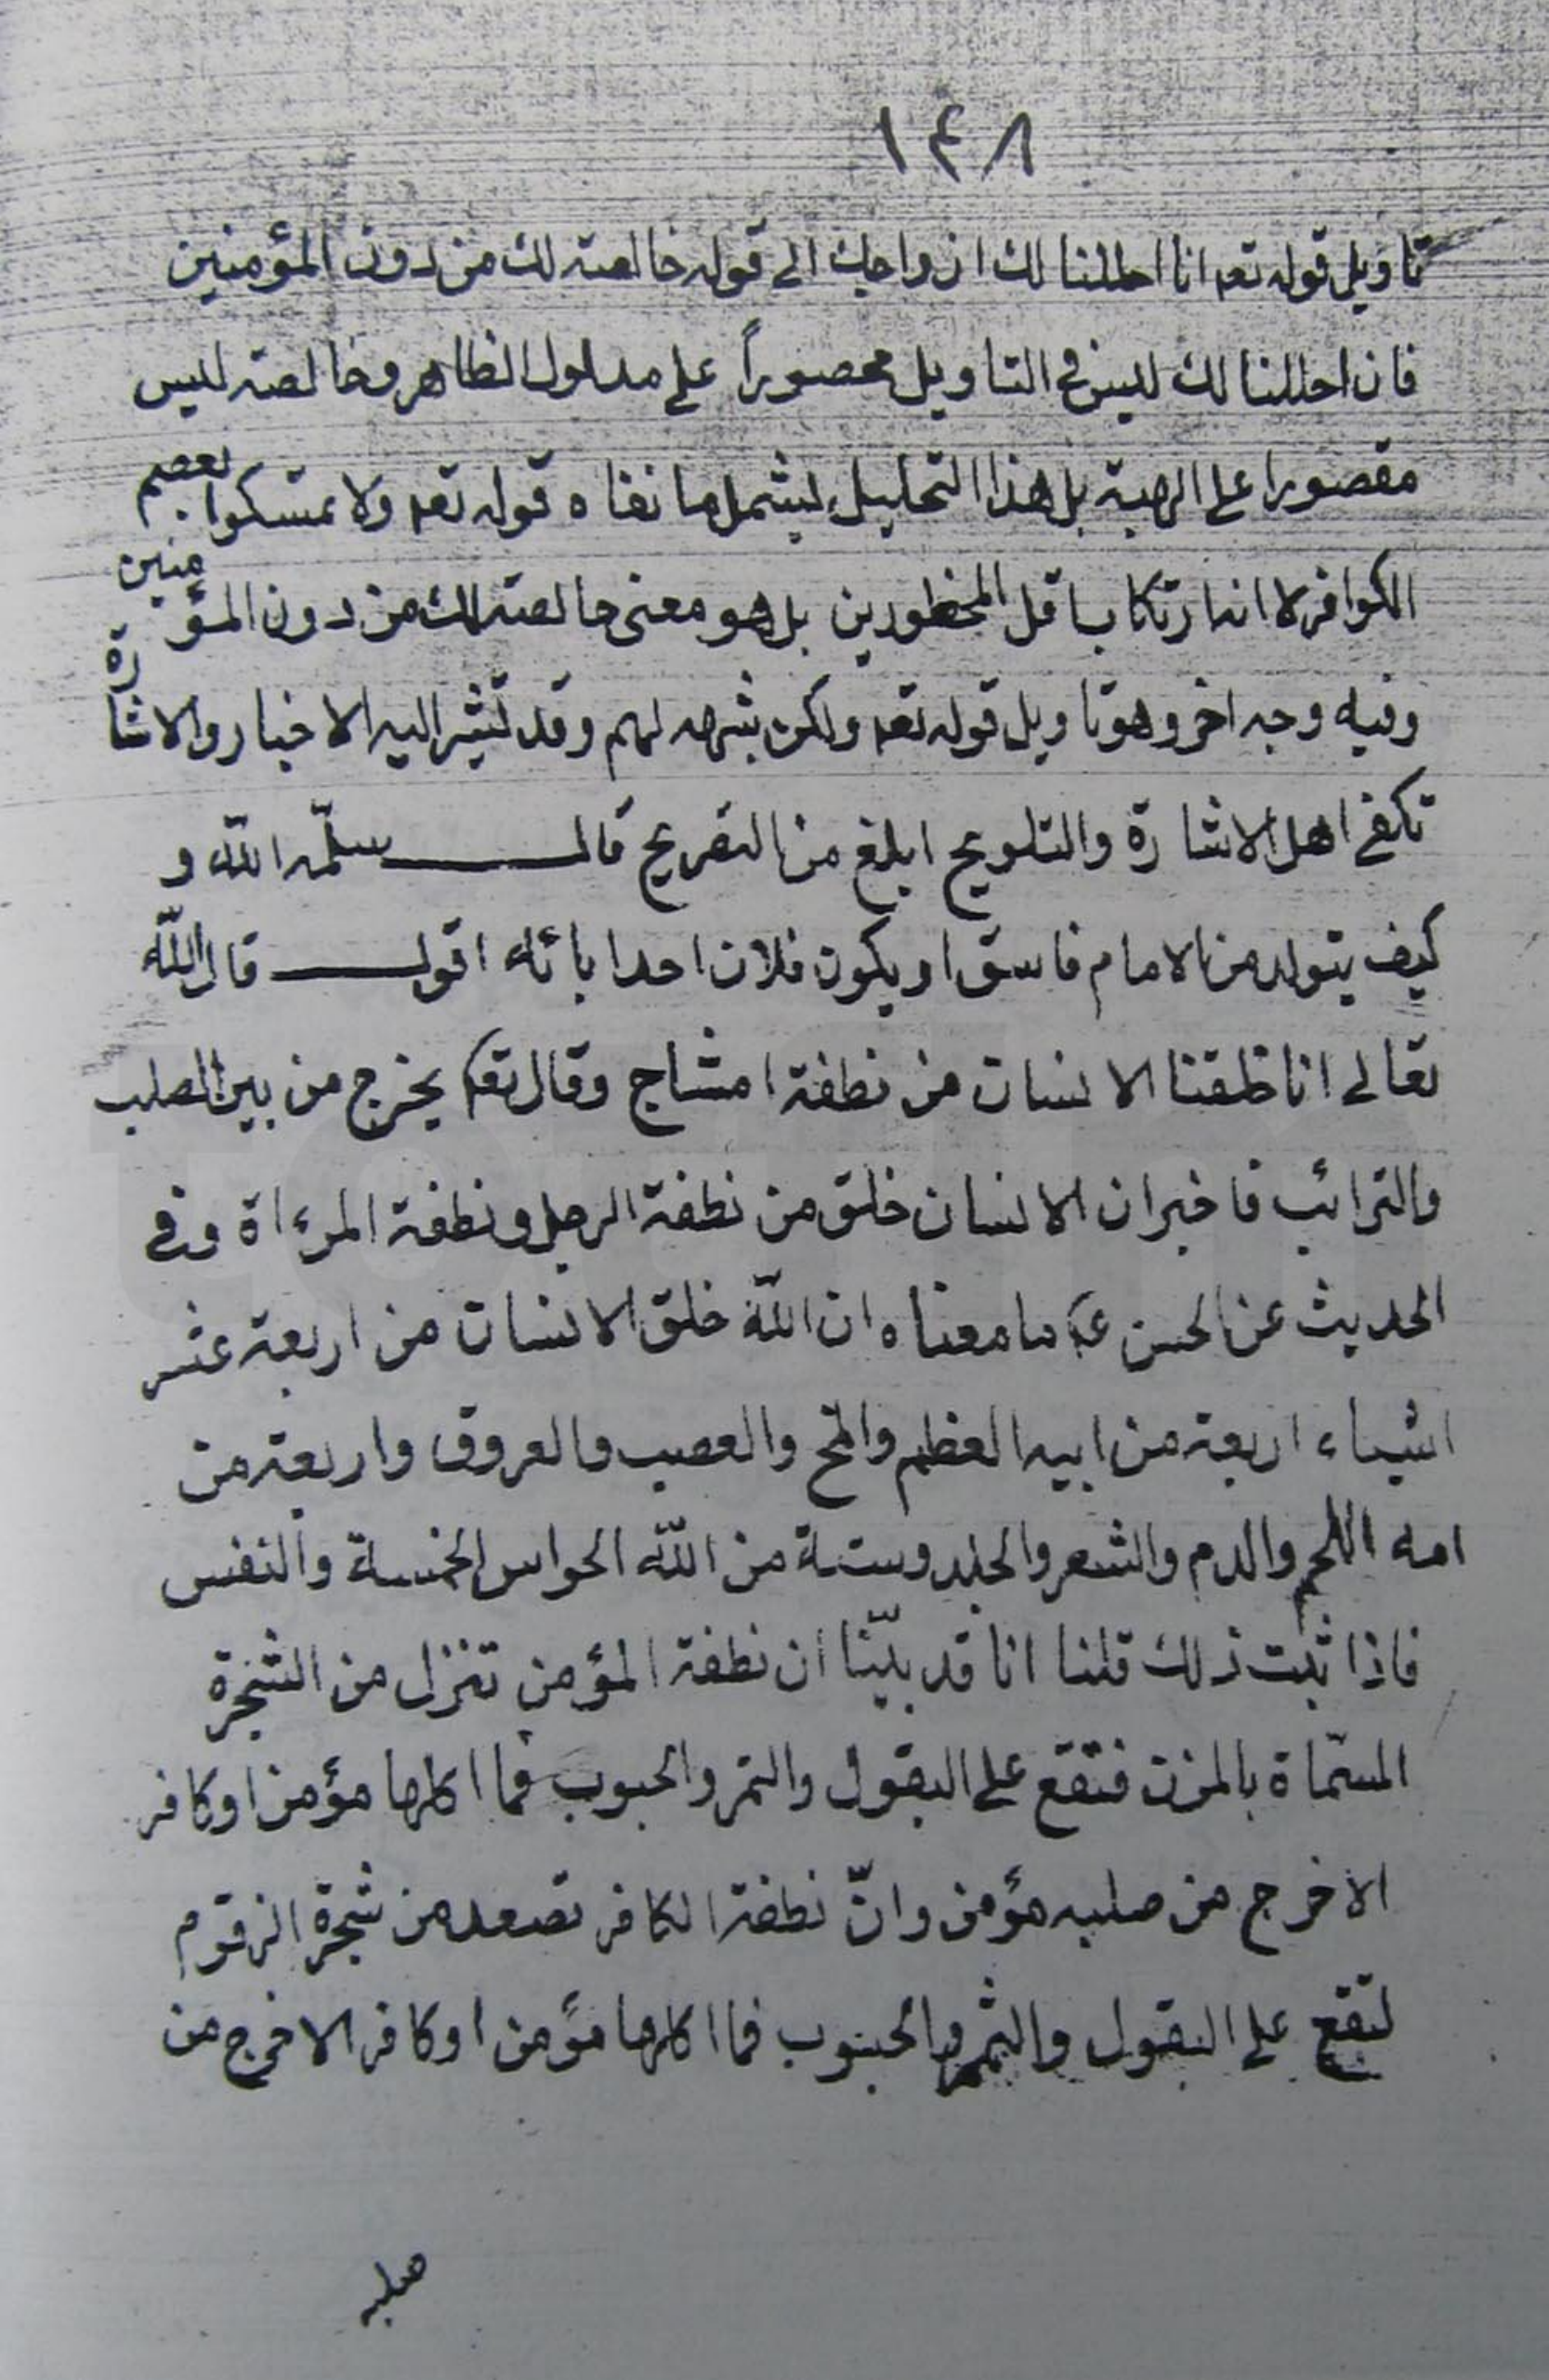 ١٤٨
تاويل قوله تعه انا احللنا لك ازواجك الى قوله خالصة لك من دون المؤمنين
فان احللنا لك ليس فى التاويل محصوراً على مدلول الظاهر وخالصة ليس
مقصورا على الهبة بل هذا التحليل ليشمل ما نفاه قوله تعه ولا تمسكوا بعصم
الكوافر لا انه ارتكاب باقل المحظورين بل هو معنى خالصة لك من دون المؤمنين
وفيه وجه اخر وهو تاويل قوله تعه ولكن شبه لهم وقد تشير اليه الاخبار والاشارة
تكفى اهل الاشارة والتلويح ابلغ من التصريح قال سلّمه الله و
كيف يتولد من الامام فاسق او يكون فلان احد ابائه اقول قال الله
تعالى انا خلقنا الانسان من نطفة امشاج وقال تعه يخرج من بين الصلب
والترائب فاخبر ان الانسان خلق من نطفة الرجل ونطفة المرءاة وفى
الحديث عن الحسن ع ما معناه ان الله خلق الانسان من اربعة عشر
اشياء اربعة من ابيه العظم والمخ والعصب والعروق واربعة من
امه اللحم والدم والشعر والجلد وستة من الله الحواس الخمسة والنفس
فاذا ثبت ذلك قلنا انا قد بيّنا ان نطفة المؤمن تنزل من الشجرة
المسمّاة بالمزن فتقع على البقول والتمر والحبوب فما اكلها مؤمن او كافر
الا خرج من صلبه مؤمن وانّ نطفة الكافر تصعد من شجرة الزقوم
لتقع على البقول والثمر والحبوب فما اكلها مؤمن او كافر الا خرج من
صلبه